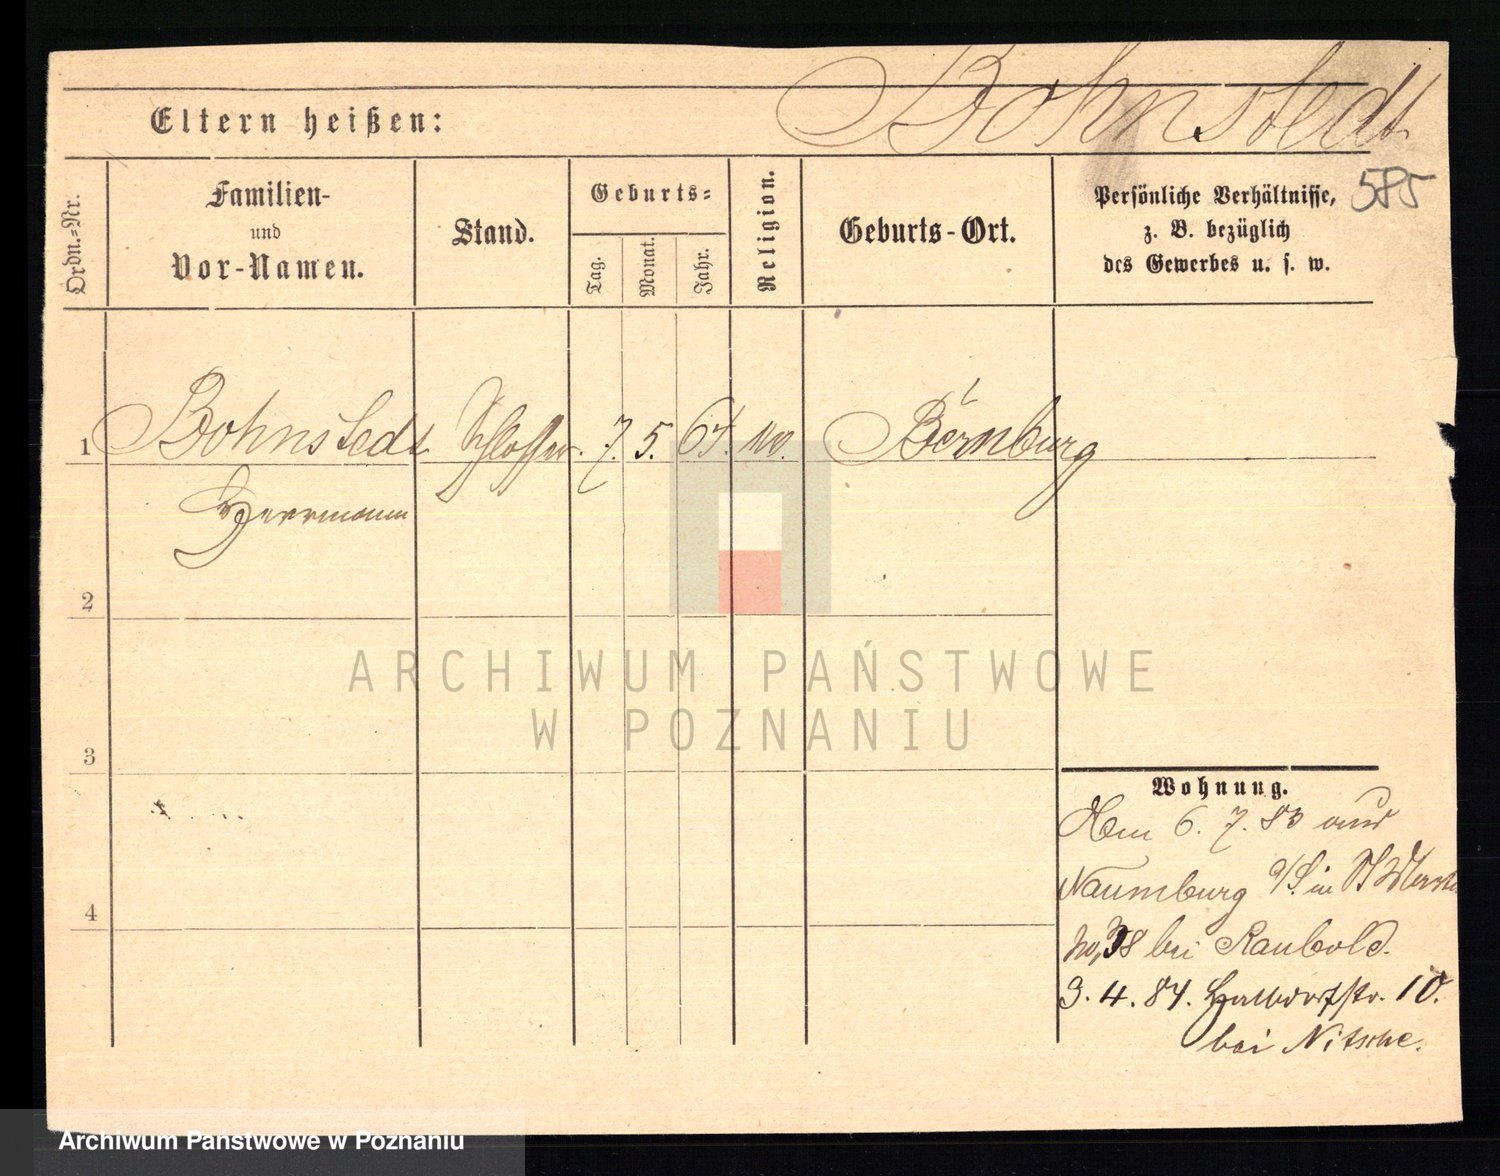 Bohnstedt
Eltern heißen:
585
Ordn.=Nr.
Familien-
und
Vor-Namen.
Stand.
Geburts=
Tag.
Monat.
Jahr.
Religion.
Geburts-Ort.
Persönliche Verhältnisse,
z. B. bezüglich
des Gewerbes u. s. w.
1 Bohnstedt Schlosser. 7. 5. 64. Bernburg
Herrmann
2
3
4
ARCHIWUM PAŃSTWOWE
W POZNANIU
Wohnung.
6. 7. 83 aus
Naumburg a/S. in St
No, 38 bei Raubold.
3. 4. 84. Halbdorfstr. 10.
bei Nitsche.
Archiwum Państwowe w Poznaniu